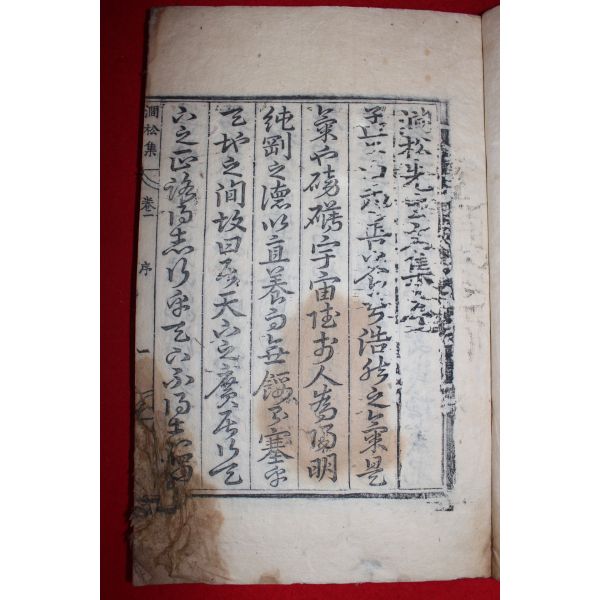 澗松先生文集序
孟子曰我善養吾浩然之氣是
氣也磅礴宇宙於人爲陽明
純剛之德以直養而無餒則塞乎
天地之間故曰居天下之廣居行天
下之正路得志行乎天下不得志獨
澗松集 卷一 序 一